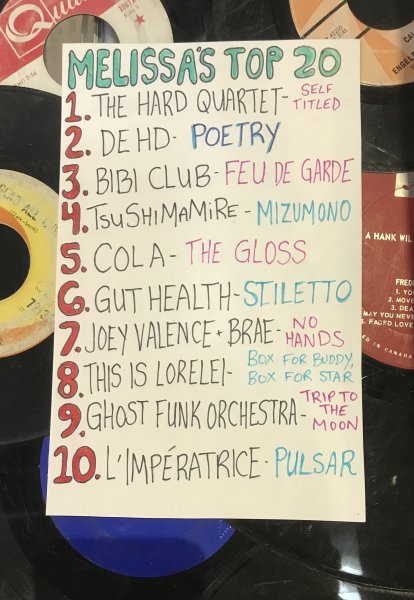 MELISSA'S TOP 20
1. THE HARD QUARTET- SELF TITLED
2. DEHD- POETRY
3. BIBI CLUB- FEU DE GARDE
4. TSUSHIMAMIRE - MIZUMONO
5. COLA - THE GLOSS
6. GUT HEALTH- STILETTO
7. JOEY VALENCE + BRAE- NO HANDS
8. THIS IS LORELEI- BOX FOR BUDDY, BOX FOR STAR
9. GHOST FUNK ORCHESTRA- TRIP TO THE MOON
10. L'IMPÉRATRICE- PULSAR
A HANK WIL
FRED
1. YOU
2. MOVE
3. DEA
MAY YOU NEVE
4. FADED LOVE
D IN CANADA
ENGEL